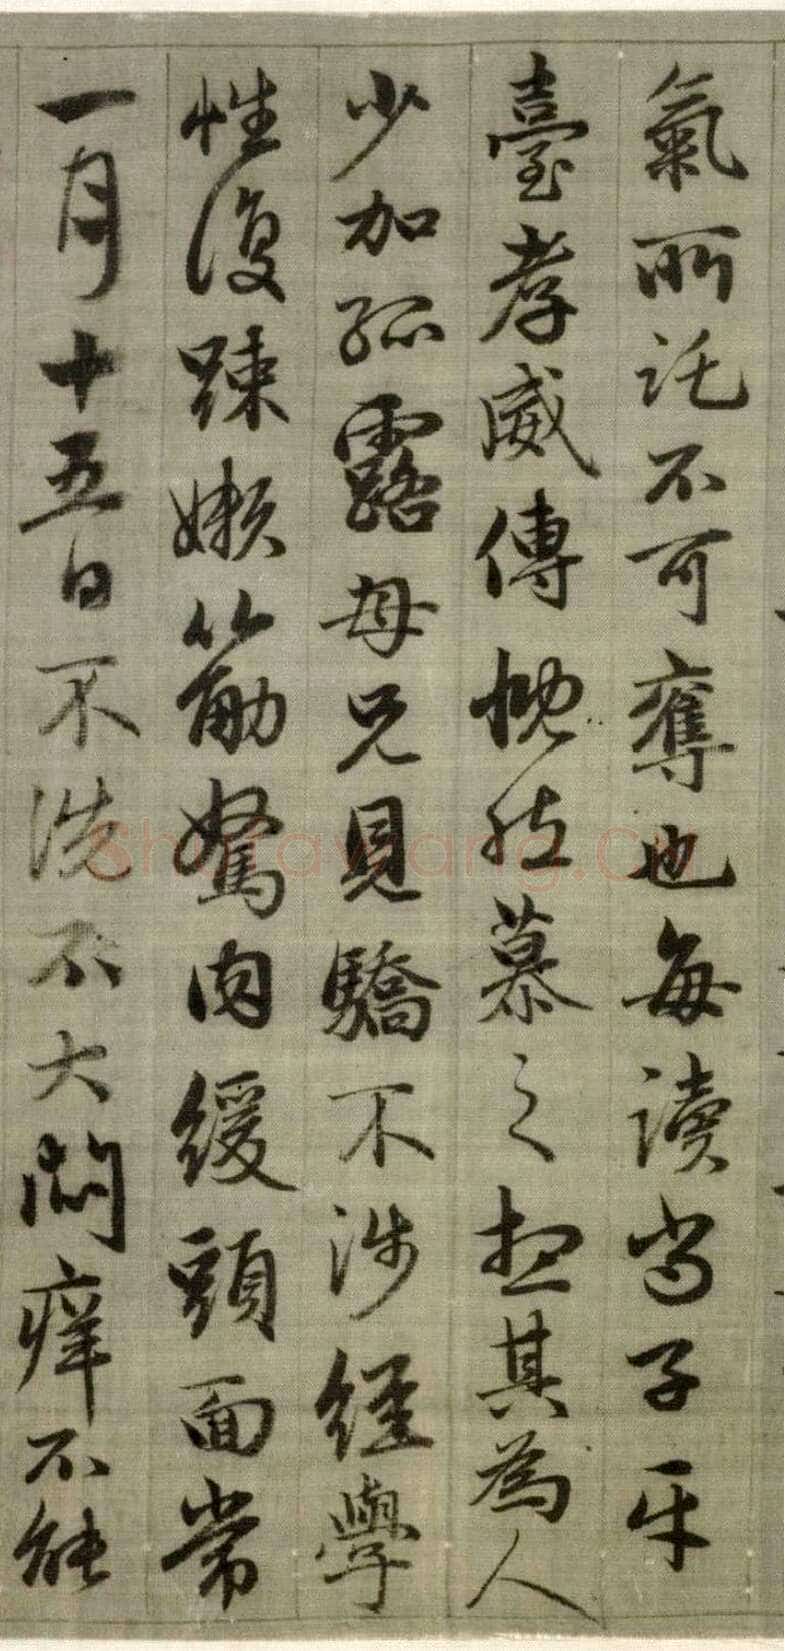 氣所託不可奪也每讀尚子平
臺孝威傳慨然慕之想其為人
少加孤露母兄見驕不涉經學
性復踈嬾筋駑肉緩頭面常
一月十五日不洗不大悶痒不能
Shufawang.Cn